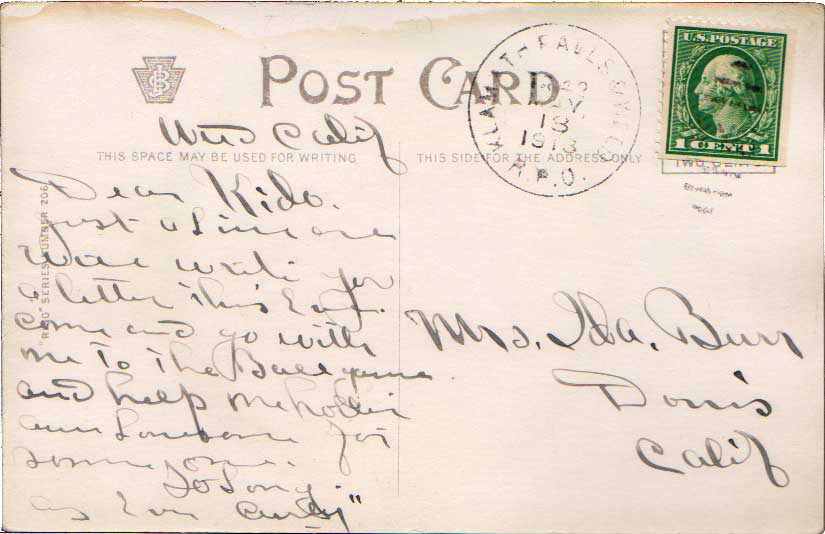 POST CARD
Weed Calif
THIS SPACE MAY BE USED FOR WRITING
THIS SIDE FOR THE ADDRESS ONLY
KLAMATH FALLS &
18
1913
R.P.O.
U.S. POSTAGE
1 CENT 1
Dear Kido.
just a line and
will write you
a letter this Eve.
Come and go with
me To The Ball game
and help me holler
am Lonesome for
some one.
So Long
as Ever Curly"
Mrs. Ida. Burr
Dorris
Calif
SERIES NUMBER 206